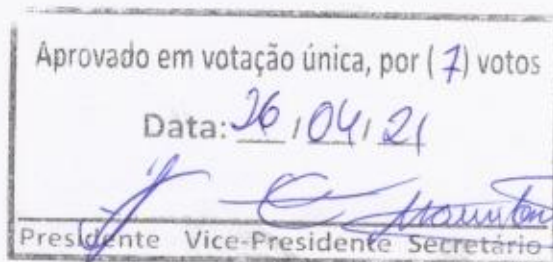 Aprovado em votação única, por (7) votos
Data: 26/04/21
Presidente Vice-Presidente Secretário